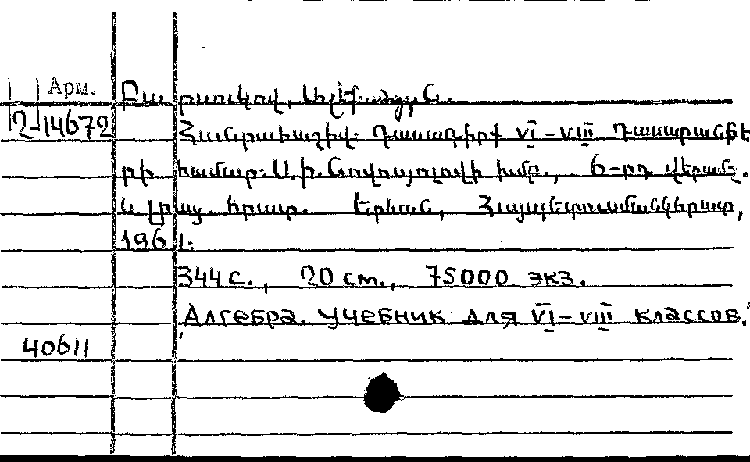 Арм.
Բարսուկով, Ալեքսանդր Ն.
Հ-14672
Հանրահաշիվ: Դասագիրք VI-VIII դասարաննե
րի համար: Ա.Ի. խմբ., 6-րդ վերամշ.
և լրաց. հրատ. Երևան, Հայպետուսմանկհրատ,
1961.
344 с., 20 см., 75000 экз.
Алгебра. Учебник для VI-VIII классов.
40611